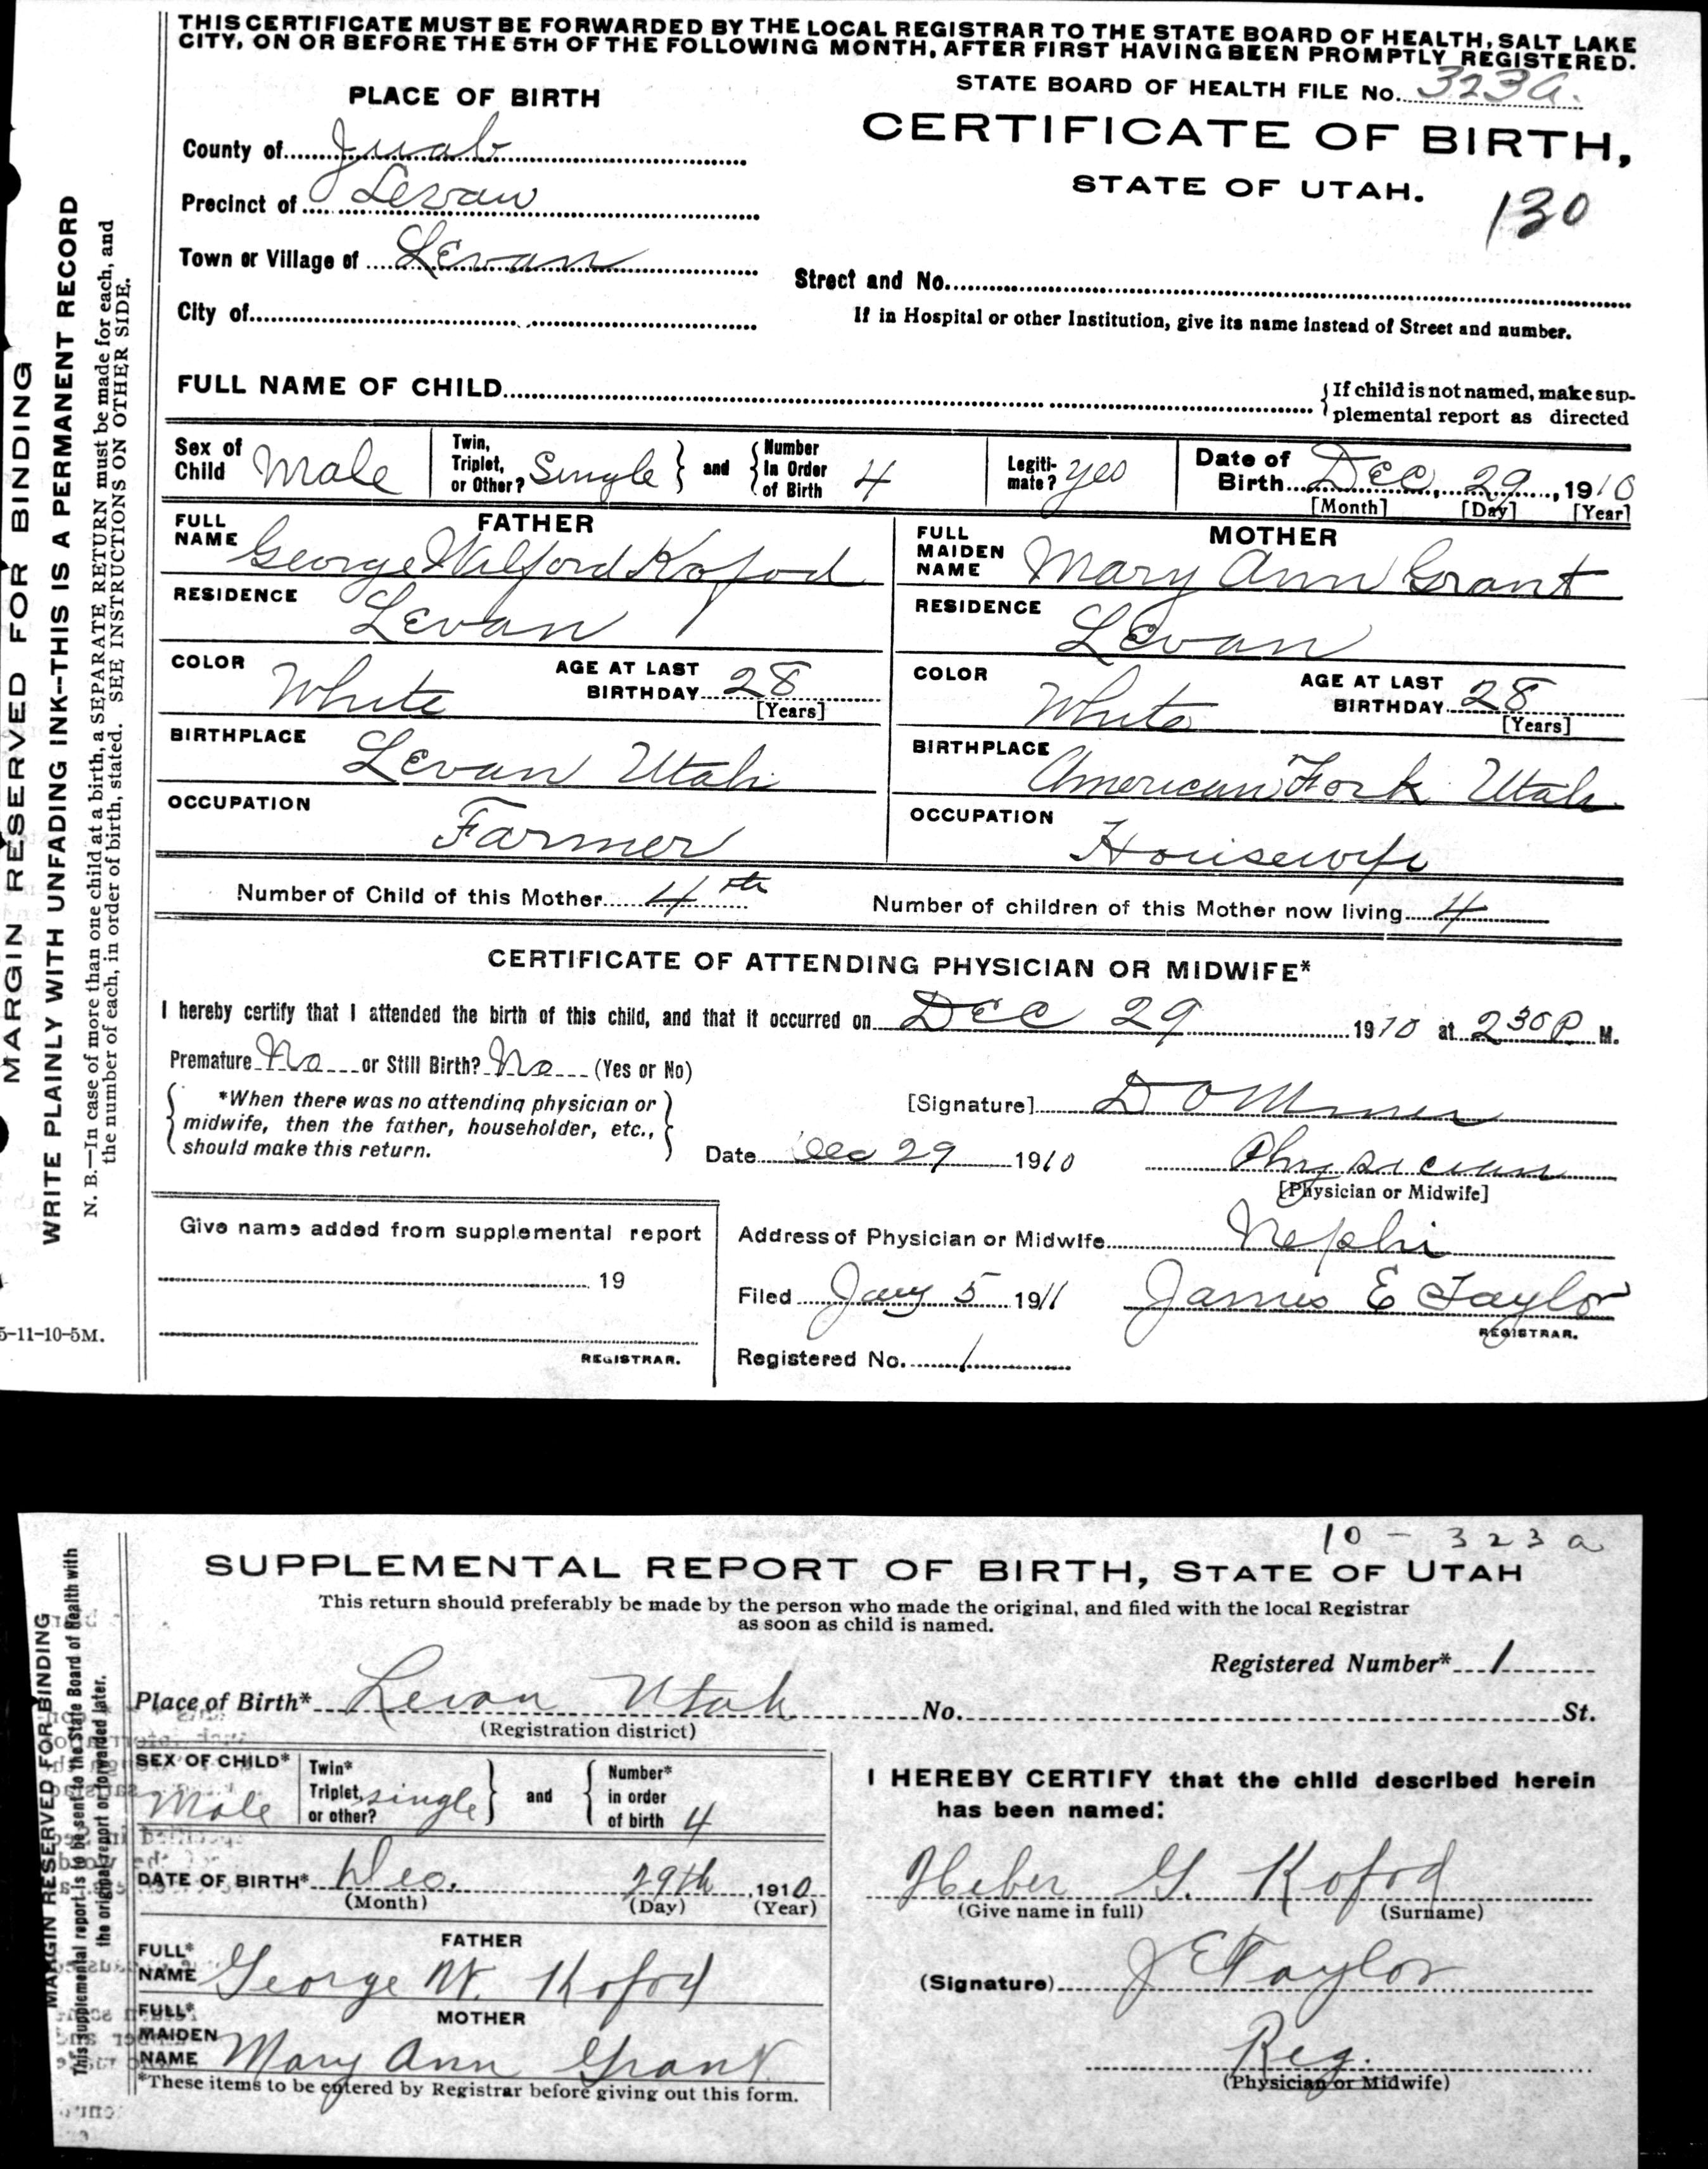 THIS CERTIFICATE MUST BE FORWARDED BY THE LOCAL REGISTRAR TO THE STATE BOARD OF HEALTH, SALT LAKE
CITY, ON OR BEFORE THE 5TH OF THE FOLLOWING MONTH, AFTER FIRST HAVING BEEN PROMPTLY REGISTERED.
STATE BOARD OF HEALTH FILE No. 323a.
PLACE OF BIRTH
CERTIFICATE OF BIRTH,
STATE OF UTAH.
130
County of Juab
Precinct of Levan
Town or Village of Levan
City of
Street and No.
If in Hospital or other Institution, give its name instead of Street and number.
FULL NAME OF CHILD
If child is not named, make sup-
plemental report as directed
Sex of Child Male
Twin, Triplet, or Other? Single and Number In Order of Birth 4
Legiti-mate? yes
Date of Birth Dec, 29, 1910
[Month] [Day] [Year]
FATHER
FULL NAME George Wilford Kofod
RESIDENCE Levan
COLOR White
AGE AT LAST BIRTHDAY 28
[Years]
BIRTHPLACE Levan Utah
OCCUPATION Farmer
MOTHER
FULL MAIDEN NAME Mary Ann Grant
RESIDENCE Levan
COLOR White
AGE AT LAST BIRTHDAY 28
[Years]
BIRTHPLACE American Fork Utah
OCCUPATION Housewife
Number of Child of this Mother 4th
Number of children of this Mother now living 4
CERTIFICATE OF ATTENDING PHYSICIAN OR MIDWIFE*
I hereby certify that I attended the birth of this child, and that it occurred on Dec 29 1910 at 230 P M.
Premature No or Still Birth? No (Yes or No)
*When there was no attending physician or
midwife, then the father, householder, etc.,
should make this return.
[Signature]
Date Dec 29 1910
Physician
[Physician or Midwife]
Give name added from supplemental report
19
REGISTRAR.
Address of Physician or Midwife Nephi
Filed Jany 5 1911 James E Taylor
REGISTRAR.
Registered No. 1
MARGIN RESERVED FOR BINDING
WRITE PLAINLY WITH UNFADING INK--THIS IS A PERMANENT RECORD
N. B.—In case of more than one child at a birth, a SEPARATE RETURN must be made for each, and
the number of each, in order of birth, stated. SEE INSTRUCTIONS ON OTHER SIDE.
5-11-10-5M.
10 - 323a
SUPPLEMENTAL REPORT OF BIRTH, STATE OF UTAH
This return should preferably be made by the person who made the original, and filed with the local Registrar
as soon as child is named.
Registered Number* 1
Place of Birth* Levan Utah No. St.
(Registration district)
SEX OF CHILD* Male
Twin* Triplet, or other? single and Number* in order of birth 4
DATE OF BIRTH* Dec. 29th, 1910
(Month) (Day) (Year)
FATHER
FULL* NAME George W. Kofod
MOTHER
FULL* MAIDEN NAME Mary Ann Grant
*These items to be entered by Registrar before giving out this form.
I HEREBY CERTIFY that the child described herein
has been named:
Heber G. Kofod
(Give name in full) (Surname)
(Signature) J E Taylor
Reg.
(Physician or Midwife)
MARGIN RESERVED FOR BINDING
This supplemental report is to be sent to the State Board of Health with
the original report or forwarded later.